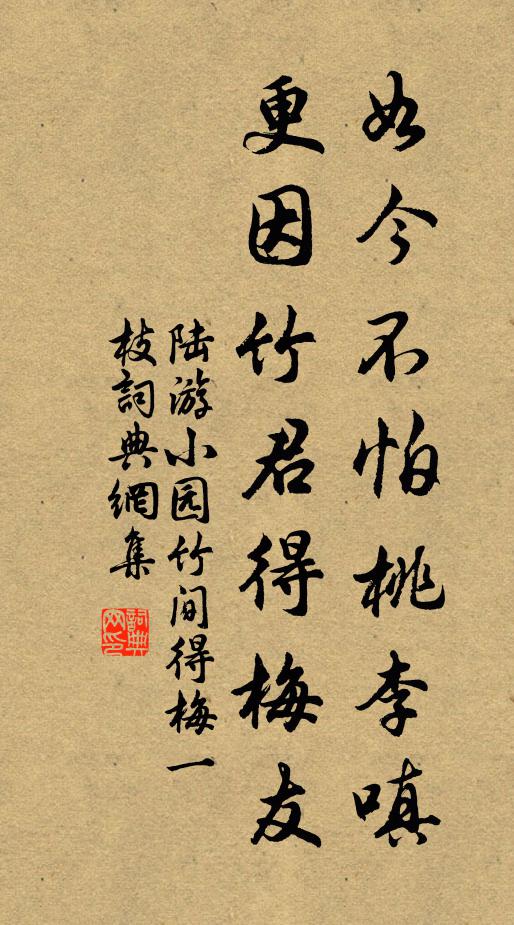 如今不怕桃李嗔
更因竹君得梅友
陆游小园竹间得梅一
枝詞典網集
詞典
网印